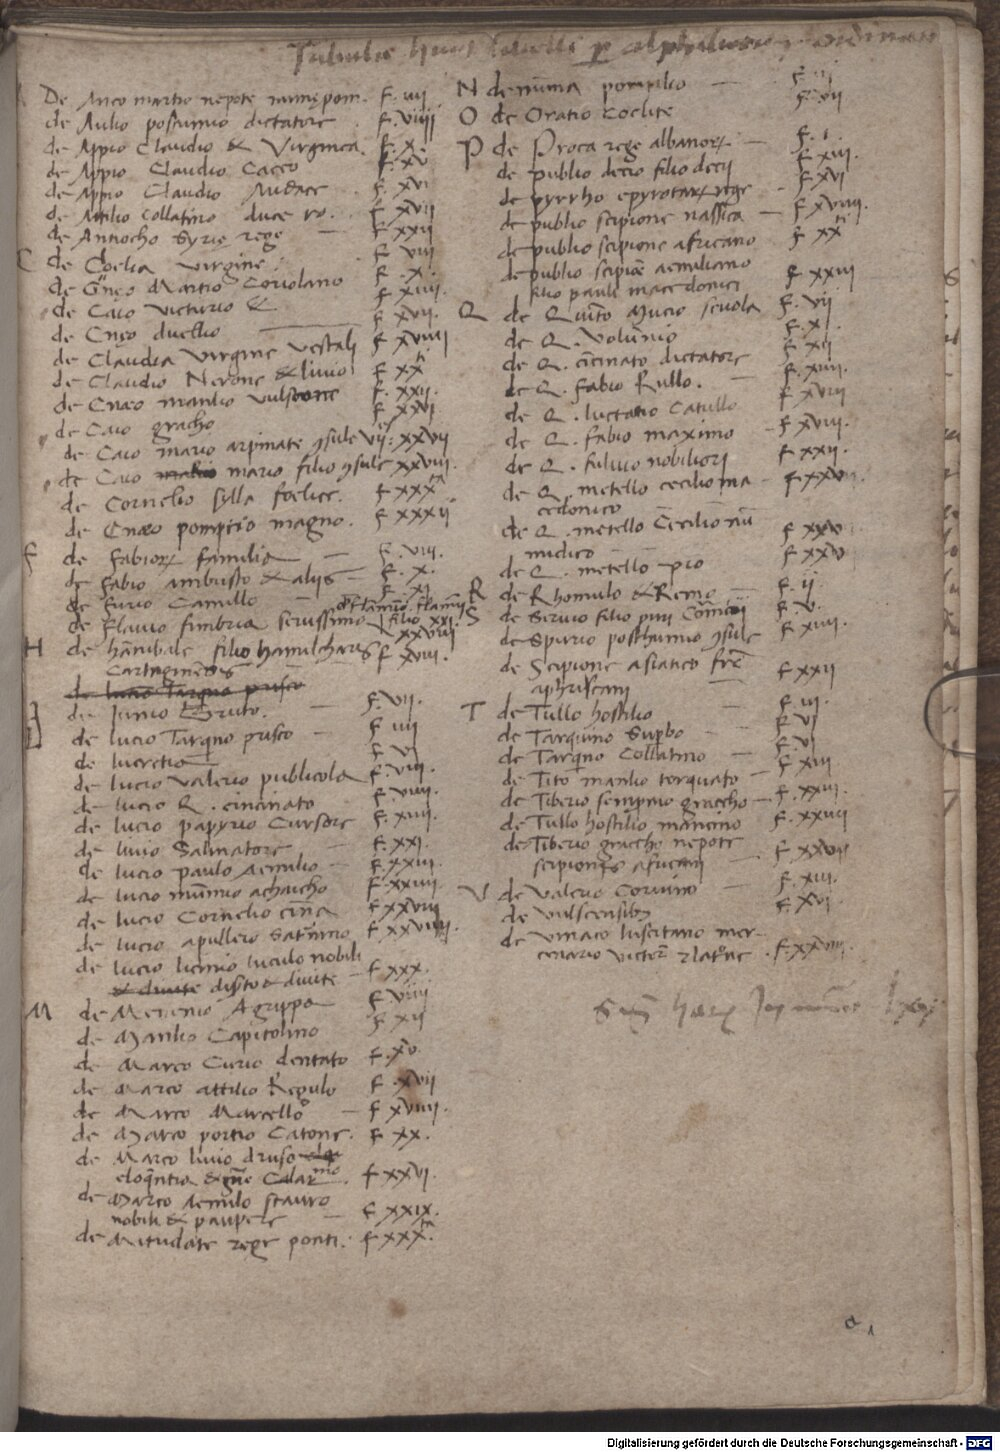 Tabula huius libelli p alphabetum ordinata
De Anco martio nepote numę pom. f. iiii
de Aulio postumio dictatore. f. viiii
de Appio Claudio & Virginea. f. x.
de Appio Claudio Caeco f. xv
de Appio Claudio Audace f. xvi
de Attilio Collatino duce ro. f. xvii
de Antiocho Syrię rege f. xxii
C de Coelia virgine. f. viii
de Gneo Martio Coriolano f. x.
de Caio veturio & f. xiiii.
de Cnęo duellio f. xvii.
de Claudia virgine vestali f. xviiii
de Claudio Nerone & livio f. xx
de Cnæo manlio vulsone f. xxii.
de Caio gracho f. xxvi
de Caio mario arpinate ɔsule vii: xxvii
de Caio mario filio ɔsule xxviii.
de Cornelio sylla foelice. f. xxx
de Cnæo pompeio magno. f. xxxii
F de Fabior familia f. viii.
de Fabio ambusto & aliis f. x.
de Furio Camillo f. xi
de Flavio fimbria sevissimo xxviii
H de hanibale filio hamilcharis f. xviii.
Cartaginensis
de lucio Tarqno prisco
de Iunio Bruto. f. vii.
de lucio Tarqno prisco f. iiii
de lucretia f. vi
de lucio valerio publicola f. viii.
de lucio Q. cincinato f. viiii.
de lucio papyrio Cursore f. xiiii.
de livio Salinatore f. xxi.
de lucio paulo Aemilio f. xxiii
de lucio mumio achaicho f. xxiiii
de lucio Cornelio cina f. xxviii
de lucio apulleio Saturnino f. xxviiii.
de lucio licinio luculo nobili
& divite diserto & divite f. xxx.
M de Menenio Agrippa f. viiii
de Manlio Capitolino f. xii
de Marco Curio dentato f. xv.
de Marco attilio Regulo f. xvii
de Marco Marcello f. xviiii.
de Marco portio Catone. f. xx.
de Marco livio druso
eloqntia & f. xxvi
de Marco Aemilo scauro
nobili & paupere f. xxix.
de Mitridate rege ponti. f. xxx.
N de numa pompilio f. ii
O de Oratio Coclite f. vii
P de Proca rege albanor f. i
de publio decio filio decii f. xiii.
de pyrrho epyrotar rege f. xvi
de publio scipione nassica f. xviiii.
de publio scipione africano f. xx
de publio scipiõe aemiliano
filio pauli macedonici f. xxiii
Q de Quinto Mucio scevola f. vii
de Q. volunio f. x.
de Q. cincinato dictatore f. xii
de Q. fabio Rullo. f. xiiii.
de Q. luctatio Catullo f. xviii
de Q. fabio maximo f. xviiii.
de Q. fulvio nobiliori f. xxii.
de Q. metello cecilio ma
cedonico f. xxv
de Q. metello Cecilio nu
midico f. xxv
de Q. metello pio f. xxv
R de Rhomulo & Remo f. ii
S de Servio filio f. v.
de Spurio posthumio ɔsule f. xiiii.
de Scipione asiatico fre
aphricani f. xxii
T de Tullo hostilio f. iii.
de Tarquino Supbo f. vi
de Tarqno Collatino f. vi
de Tito manlio torquato f. xiii
de Tiberio sempnio graccho f. xxiii.
de Tullo hostilio mancino f. xxvii
de Tiberio graccho nepote
scipionis africani f. xxvii
V de Valerio Corvino f. xiii.
de vulscensibus f. xvi.
de viriaco lusitano mer
cenario victor latone f. xxviii.
a 1
Digitalisierung gefördert durch die Deutsche Forschungsgemeinschaft - DFG